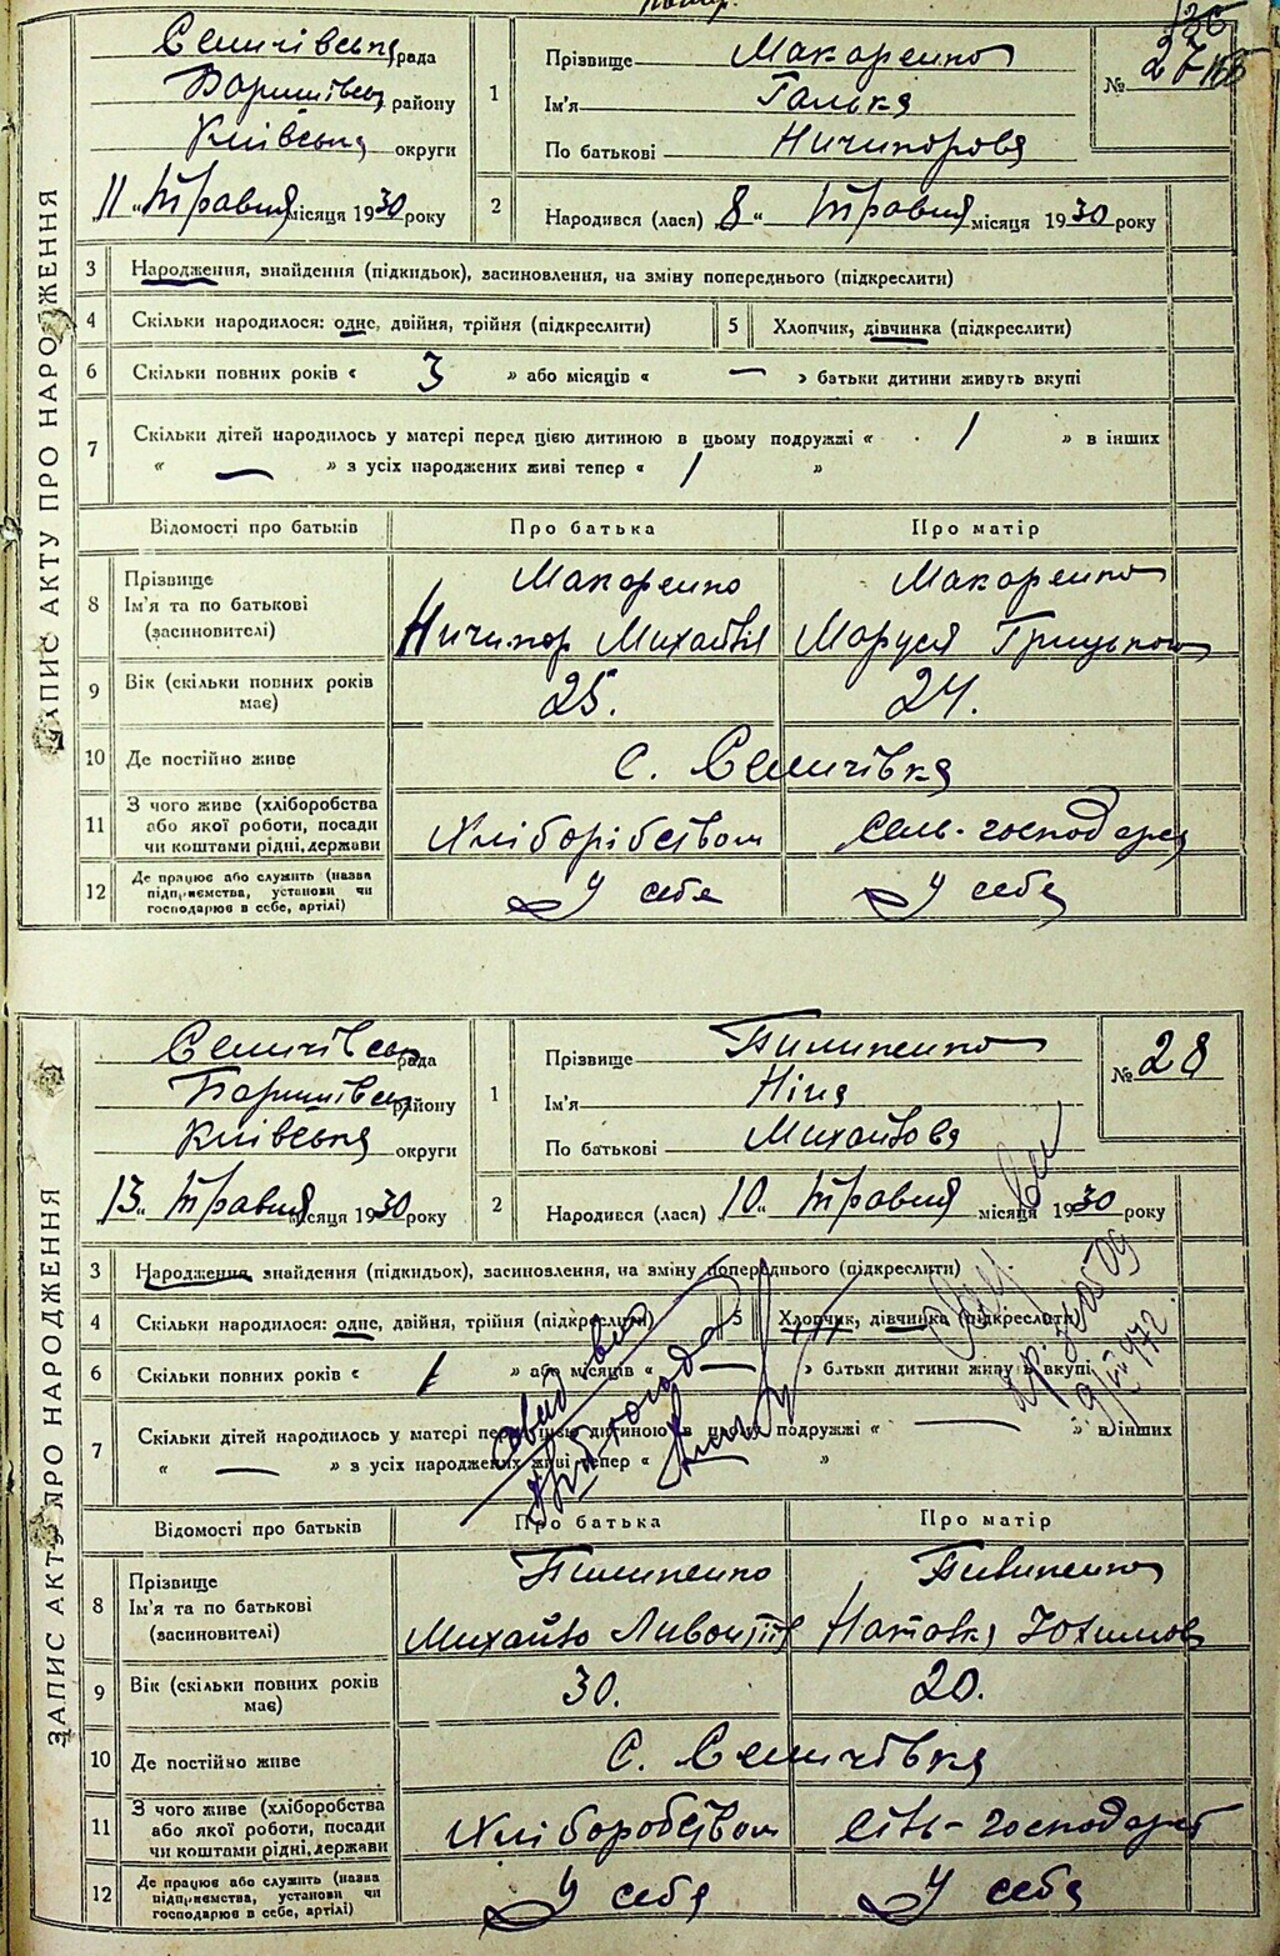 136
Селичівська рада
Баришівськ району
Київська округи
„11“ Травня місяця 1930 року
1
Прізвище Макаренко
Ім'я Галька
По батькові Ничипорова
№ 27
2
Народився (лася) „8“ Травня місяця 1930 року
ЗАПИС АКТУ ПРО НАРОДЖЕННЯ
3 Народження, знайдення (підкидьок), засиновлення, на зміну попереднього (підкреслити)
4 Скільки народилося: одне, двійня, трійня (підкреслити)
5 Хлопчик, дівчинка (підкреслити)
6 Скільки повних років « 3 » або місяців « — » батьки дитини живуть вкупі
7 Скільки дітей народилось у матері перед цією дитиною в цьому подружжі « 1 » в інших
« — » з усіх народжених живі тепер « 1 »
Відомості про батьків Про батька Про матір
8 Прізвище Макаренко Макаренко
Ім'я та по батькові
(засиновителі) Ничипор Михайлів Маруся Грицькова
9 Вік (скільки повних років 25. 24.
має)
10 Де постійно живе с. Селичівка
11 З чого живе (хліборобства
або якої роботи, посади Хліборібством Сель-господарка
чи коштами рідні, держави
12 Де працює або служить (назва
підприємства, установи чи У себе У себе
господарює в себе, артілі)
Селичівськ рада
Баришівськ району
Київська округи
„13“ Травня місяця 1930 року
1
Прізвище Пилипенко
Ім'я Ніна
По батькові Михайлова
№ 28
2
Народився (лася) „10“ Травня місяця 1930 року
ЗАПИС АКТУ ПРО НАРОДЖЕННЯ
3 Народження, знайдення (підкидьок), засиновлення, на зміну попереднього (підкреслити)
4 Скільки народилося: одне, двійня, трійня (підкреслити)
5 Хлопчик, дівчинка (підкреслити)
6 Скільки повних років « 1 » або місяців « — » батьки дитини живуть вкупі
7 Скільки дітей народилось у матері перед цією дитиною в цьому подружжі « — » в інших
« — » з усіх народжених живі тепер « »
Відомості про батьків Про батька Про матір
8 Прізвище Пилипенко Пилипенко
Ім'я та по батькові
(засиновителі) Михайло Ливонтіїв Наталка Юхимов
9 Вік (скільки повних років 30. 20.
має)
10 Де постійно живе с. Селичівка
11 З чого живе (хліборобства
або якої роботи, посади Хліборобством Сіль-господарст
чи коштами рідні, держави
12 Де працює або служить (назва
підприємства, установи чи У себе У себе
господарює в себе, артілі)